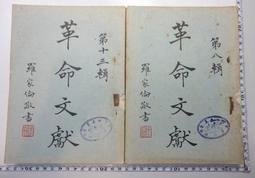 第八輯
革命文獻
羅家倫敬書
第十三輯
革命文獻
羅家倫敬書